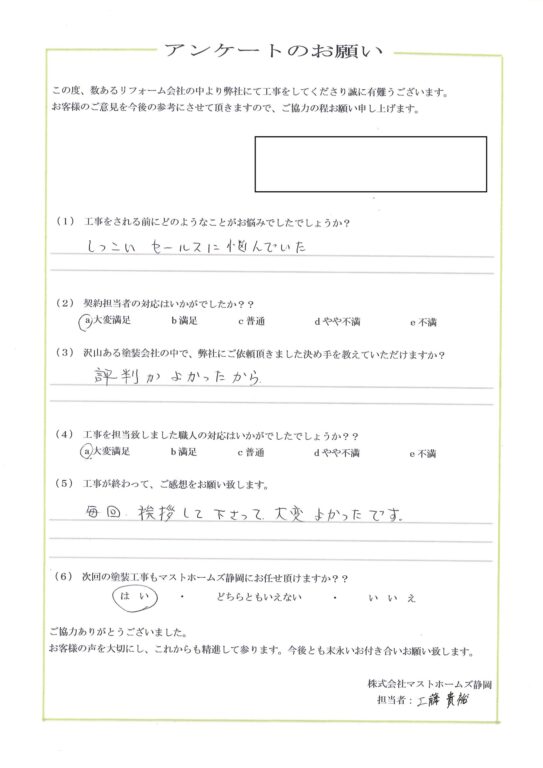 アンケートのお願い
この度、数あるリフォーム会社の中より弊社にて工事をしてくださり誠に有難うございます。
お客様のご意見を今後の参考にさせて頂きますので、ご協力の程お願い申し上げます。
(1) 工事をされる前にどのようなことがお悩みでしたでしょうか?
しつこい セールスに悩んでいた
(2) 契約担当者の対応はいかがでしたか??
a 大変満足 b 満足 c 普通 d やや不満 e 不満
(3) 沢山ある塗装会社の中で、弊社にご依頼頂きました決め手を教えていただけますか?
評判が よかったから
(4) 工事を担当致しました職人の対応はいかがでしたでしょうか??
a 大変満足 b 満足 c 普通 d やや不満 e 不満
(5) 工事が終わって、ご感想をお願い致します。
毎回 挨拶して下さって 大変 よかったです。
(6) 次回の塗装工事もマストホームズ静岡にお任せ頂けますか??
は い ・ どちらともいえない ・ い い え
ご協力ありがとうございました。
お客様の声を大切にし、これからも精進して参ります。今後とも末永いお付き合いお願い致します。
株式会社マストホームズ静岡
担当者:工藤 貴裕